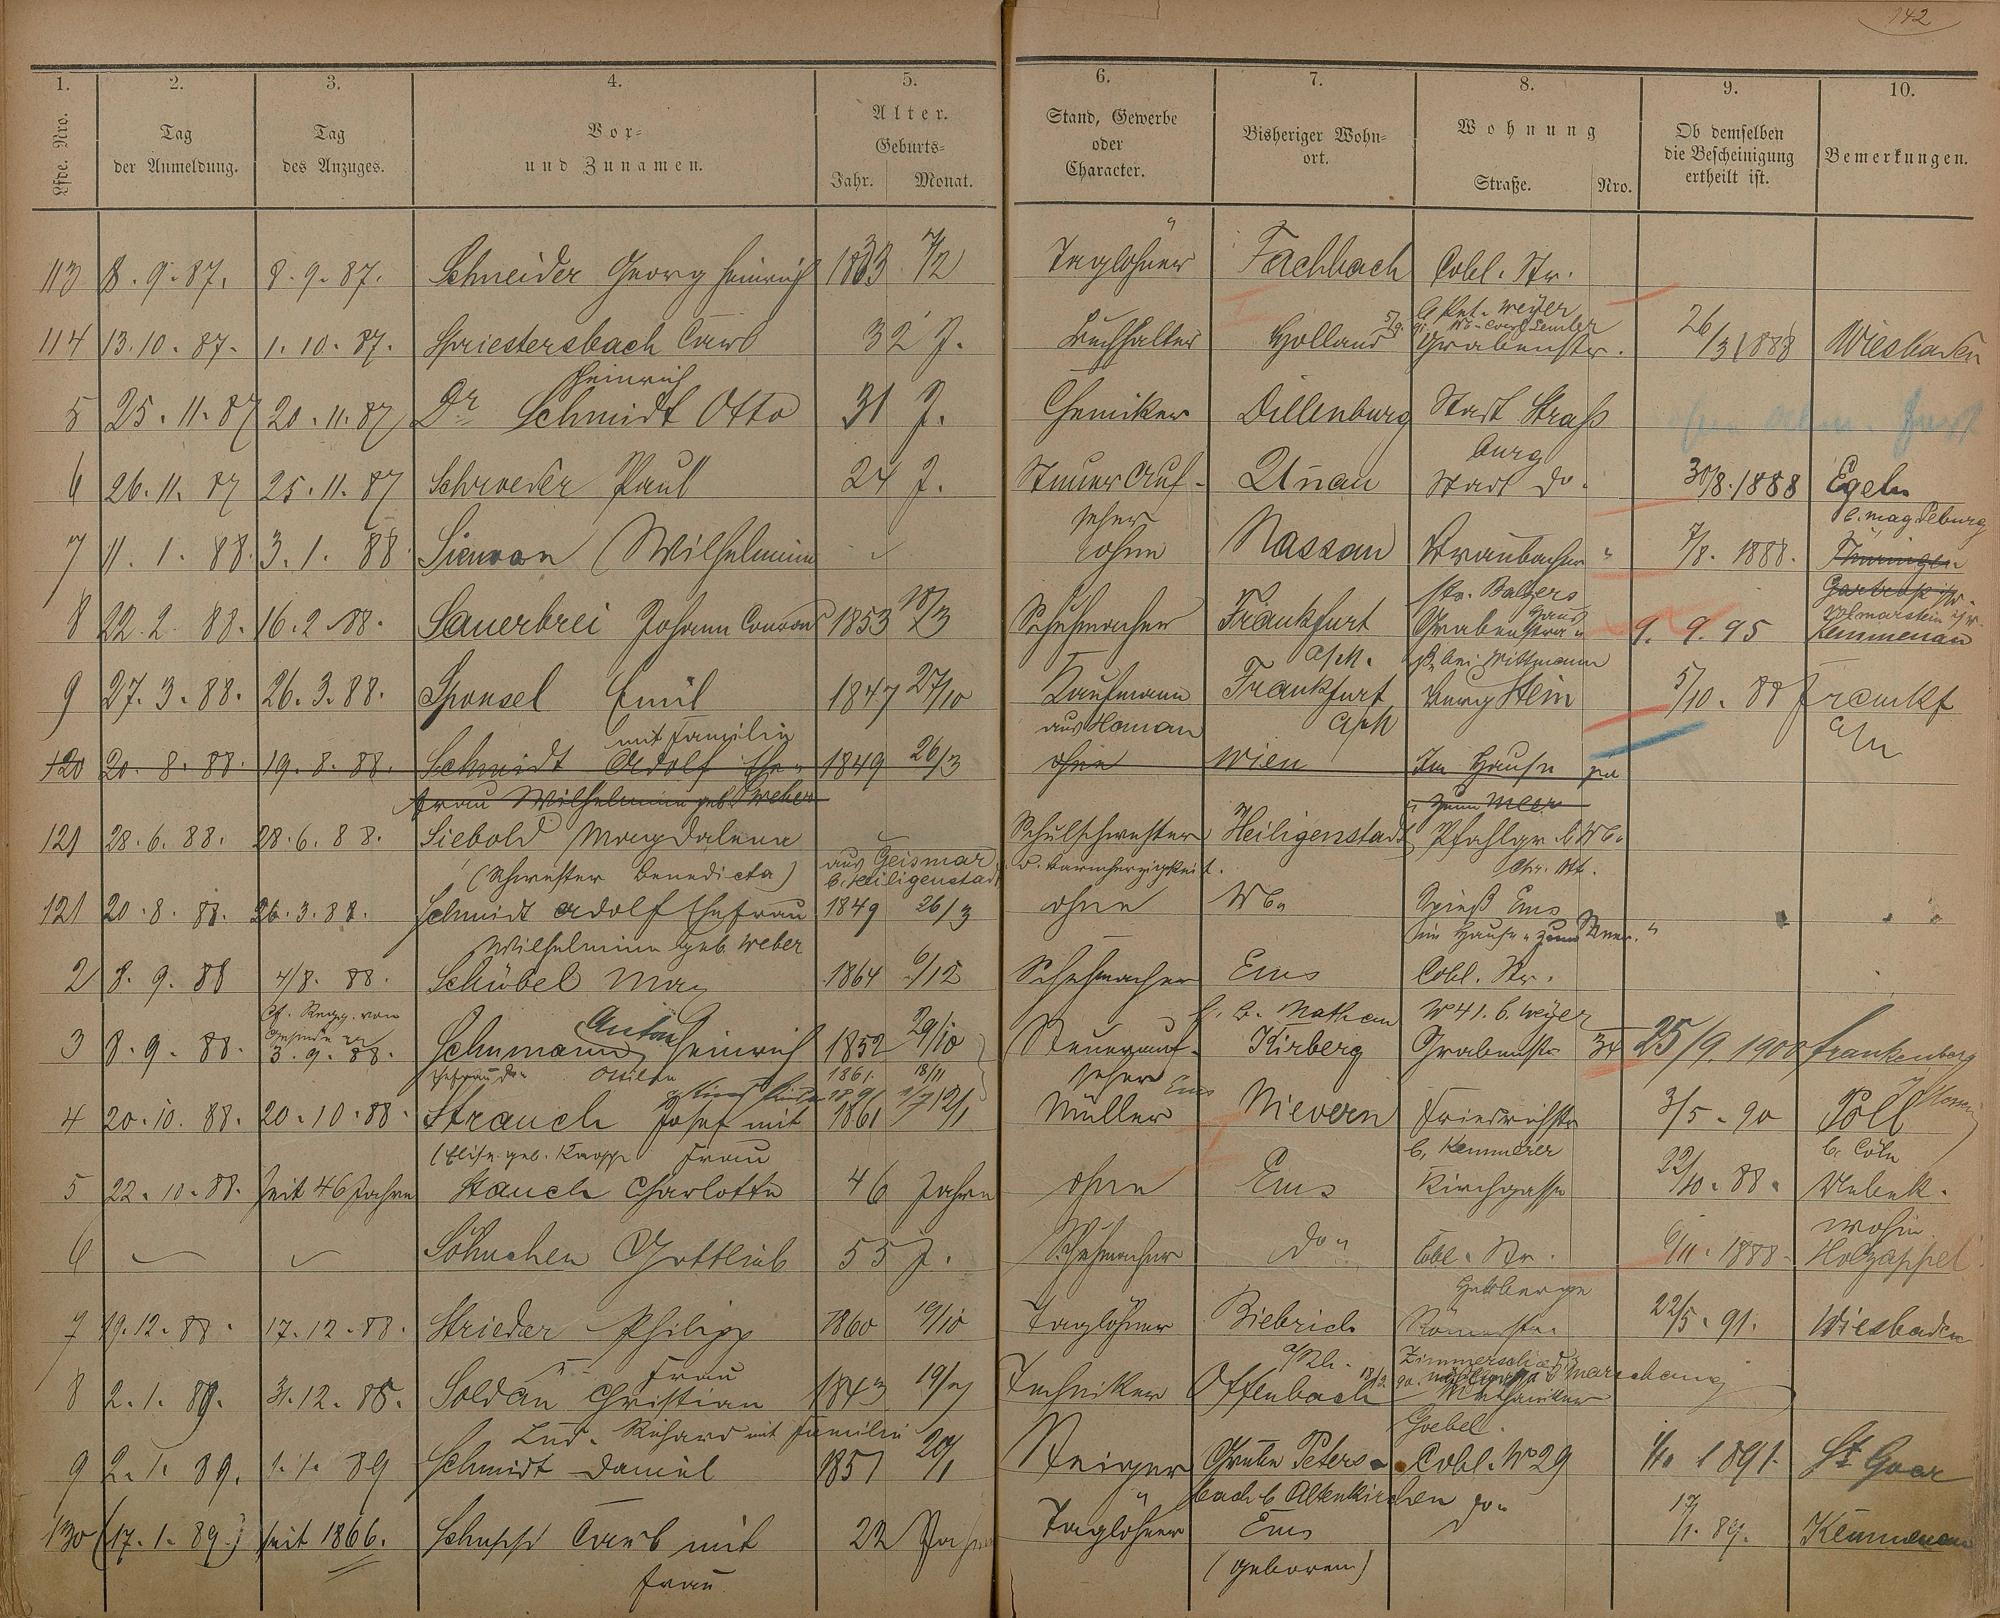 142
1. 2. 3. 4. 5. 6. 7. 8. 9. 10.
Lfde. Nro.
Tag der Anmeldung.
Tag des Anzuges.
Vor- und Zunamen.
Alter.
Geburts-
Jahr. Monat.
Stand, Gewerbe oder Character.
Bisheriger Wohn-ort.
Wohnung
Straße. Nro.
Ob demselben die Bescheinigung ertheilt ist.
Bemerkungen.
113 8.9.87. 8.9.87. Schneider Georg Heinrich 1863 7/2 Taglöhner Fachbach Cobl. Str.
b. Rnt. Weyer
114 13.10.87. 1.10.87. Spriestersbach Carl 32 J. Buchhalter Holland Grabenstr. 26/3 1888 Wiesbaden
Heinrich
5 25.11.87 20.11.87 Dr Schmidt Otto 31 J. Chemiker Dillenburg Stadt Straß
burg
6 26.11.87 25.11.87 Schroeder Paul 24 J. Steuer Auf- Stadt do. 30/8.1888 Egeln
seher b. Magdeburg
7 11.1.88. 3.1.88. Wilhelmine ohne Nassau Braubacher " 7/8.1888. Thüringen
str. Balzers
Haus
8 22.2.88. 16.2.88. Sauerbrei Johann Conrad 1853 18/3 Schuhmacher Frankfurt Grabenstra- 9.9.95 Kemmenau
a/M. ß. bei Wittmann
9 27.3.88. 26.3.88. Sponsel Emil 1847 27/10 Kaufmann Frankfurt Burg Stein 5/10.88 Frankf
mit Familie aus Hanau a/M a/M
120 20.8.88. 19.8.88. Schmidt Adolf Ehe- 1849 26/3 ohne Wien Im Hause
frau Wilhelmine geb. Weber " zum Meer
121 28.6.88. 28.6.88. Siebold Magdalena Schulschwester Heiligenstadt Pfahlgr.
(Schwester Benedicta) aus Geismar b. Heiligenstadt d. Barmherzigkeit. Chr. Ott.
121 20.8.88. 26.3.88. Schmidt Adolf Ehefrau 1849 26/3 ohne Spieß Ems
Wilhelmine geb. Weber im Hause "zum
2 8.9.88 4/8.88. Schübel Max 1864 6/12 Schuhmacher Ems Cobl. Str.
b. B. Nathan No 41. b. Weyer
Anton
3 8.9.88. 3.9.88. Schumann Heinrich 1852 29/10 Steuerauf- Kirberg Grabenstr 34 25/9.1900 Frankenberg
1861. 18/11 seher
4 20.10.88. 20.10.88. Strauch Josef mit 1861 12/1 Müller Nievern Friedrichstr 3/5.90 Poll
(Elise geb. Knopp Frau b. Kemmerer b. Cöln
5 22.10.88. seit 46 Jahren Stauch Charlotte 46 Jahre ohne Ems Kirchgasse 22/10.88. Unbek.
wohin
6 Söhnchen Gottlieb 55 J. Schuhmacher do " Cobl. Str. 6/11.1888. Holzappel
Herberge
7 19.12.88. 17.12.88. Strieder Philipp 1860 19/10 Taglöhner Biebrich Römerstr. 22/5.91. Wiesbaden
Frau a/Rh.
8 2.1.89. 31.12.88. Soldan Christian 1843 19/7 Techniker Offenbach Mechaniker
Lud. Richard mit Familie Goebel.
9 2.1.89. 1.1.89 Schmidt Daniel 1851 20/1 Steiger Grube Peters- Cobl. No 29 1891. St. Goar
bach b. Altenkirchen
130 (17.1.89.) seit 1866. Schupp Carl mit 22 Jahre Taglöhner Ems do " 17/1.89. Kemmenau
Frau (geboren)